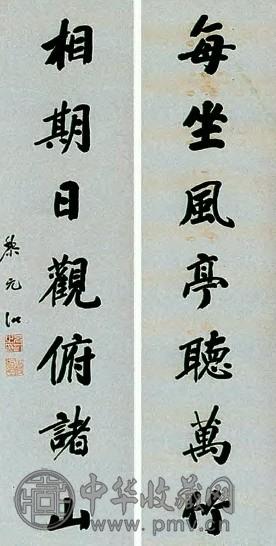 每坐風亭聽萬竹
相期日觀俯諸山
黎元洪
中华收藏网
www.pmv.cn